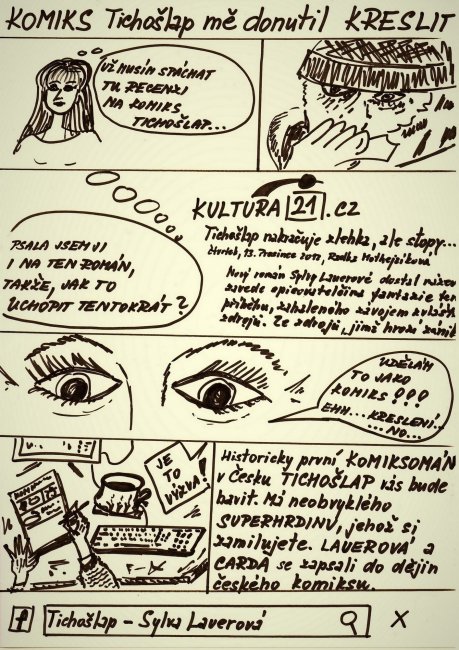 KOMIKS Tichošlap mě donutil KRESLIT
UŽ MUSÍM SPÁCHAT
TU RECENZI
NA KOMIKS
TICHOŠLAP...
KULTURA 21.CZ
Tichošlap nakračuje zlehka, ale stopy...
čtvrtek, 13. Prosinec 2012, Radka
Nový román Sylvy Lauerové dostal název
zavede opěvovatelčina fantazie
příběhu, zahaleného závojem
zdrojů. Ze zdrojů, jimž hrozí
PSALA JSEM JI
I NA TEN ROMÁN,
TAKŽE, JAK TO
UCHOPIT TENTOKRÁT?
UDĚLÁM
TO JAKO
KOMIKS!!!
EHM...KRESLENÍ...
...NO...
JE
TO
VÝZVA!
Historicky první KOMIKSOMÁN
v Česku TICHOŠLAP vás bude
bavit. Má neobvyklého
SUPERHRDINU, jehož si
zamilujete. LAUEROVÁ a
CARDA se zapsali do dějin
českého komiksu.
f Tichošlap - Sylva Lauerová X